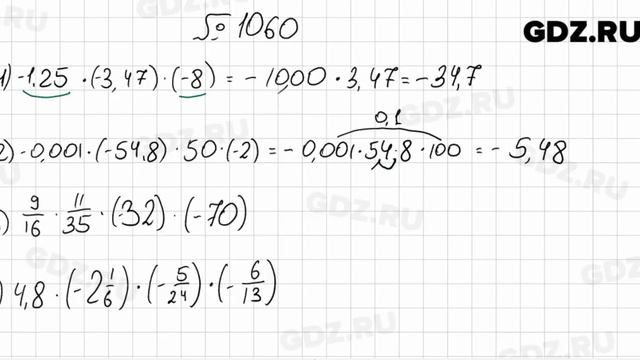 № 1060
GDZ.RU
1) -1,25 · (-3,47) · (-8) = - 10,00 · 3,47 = - 34,7
0,1
2) -0,001 · (-54,8) · 50 · (-2) = - 0,001 · 54,8 · 100 = - 5,48
) 9/16 · 11/35 · (-32) · (-70)
) 4,8 · (-2 1/6) · (- 5/24) · (- 6/13)
GDZ.RU
GDZ.RU
GDZ.RU
GDZ.RU
GDZ.RU
GDZ.RU